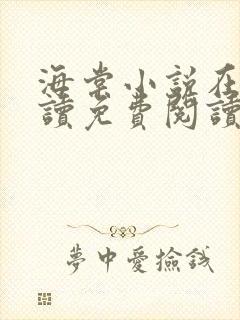 海棠小說在
讀免費閱讀
夢中愛撿錢